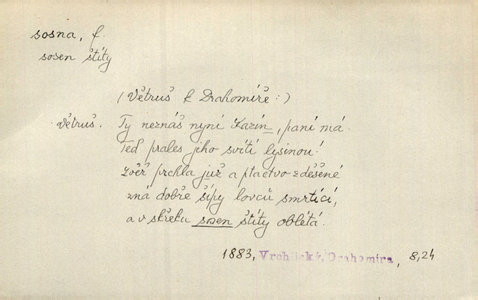 sosna, f.
sosen štíty
(Větruš k Drahomíře:)
Větruš. Ty neznáš nyní Kazín, paní má
Teď prales jeho svítí lysinou!
Zvěř prchla již a ptactvo zděšené
zná dobře šípy lovců smrtící,
a v skřeku sosen štíty oblétá.
1883, Vrchlický, Drahomíra, 8,24